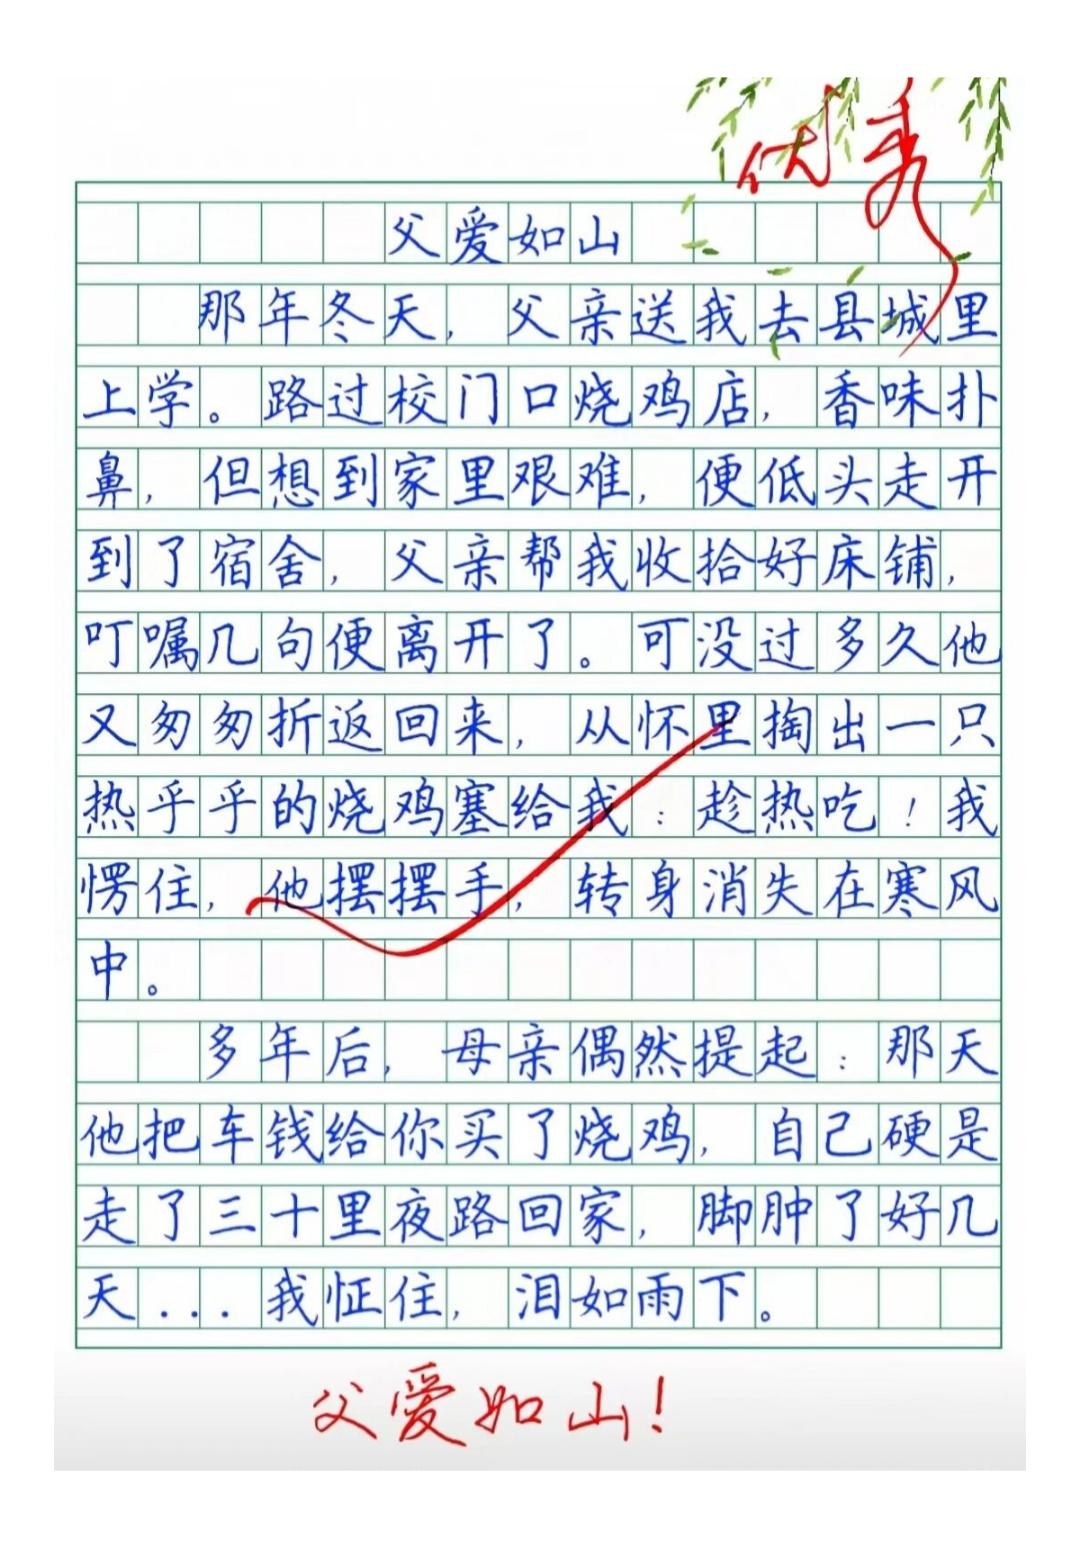 优秀
父爱如山
那年冬天，父亲送我去县城里
上学。路过校门口烧鸡店，香味扑
鼻，但想到家里艰难，便低头走开
到了宿舍，父亲帮我收拾好床铺，
叮嘱几句便离开了。可没过多久他
又匆匆折返回来，从怀里掏出一只
热乎乎的烧鸡塞给我：趁热吃！我
愣住，他摆摆手，转身消失在寒风
中。
多年后，母亲偶然提起：那天
他把车钱给你买了烧鸡，自己硬是
走了三十里夜路回家，脚肿了好几
天...我怔住，泪如雨下。
父爱如山！